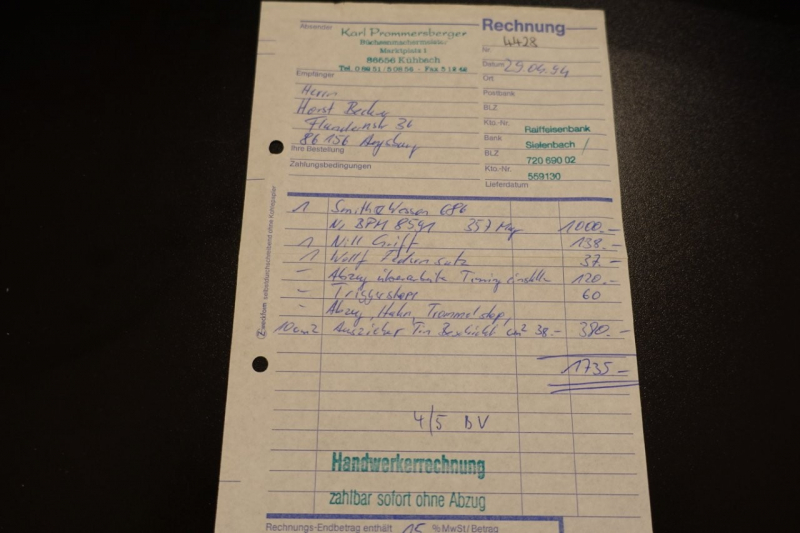 Absender
Karl Prommersberger
Büchsenmachermeister
Marktplatz 1
86556 Kühbach
Tel. 0 82 51 / 5 08 56 - Fax 5 18 42
Rechnung
Nr. 4428
Datum 29.04.94
Ort
Postbank
BLZ
Kto.-Nr. Raiffeisenbank
Bank Sielenbach
BLZ 720 690 02
Kto.-Nr. 559130
Lieferdatum
Empfänger
Herrn
Horst
36
86156 Augsburg
Ihre Bestellung
Zahlungsbedingungen
1 Smith & Wesson 686
Nr BPM 8591 357 Mag 1000.-
1 Nill Griff 138.-
1 Wolff Federnsatz 37.-
- Abzug überarbeiten Timing einstellen 120.-
- Triggerstop 60
- Abzug, Hahn, Trommelstop,
10cm2 Auszieher Tin Beschicht cm2 38.- 380.-
1735.-
4/5 BV
Handwerkerrechnung
zahlbar sofort ohne Abzug
Rechnungs-Endbetrag enthält 15 % MwSt/Betrag
Zweckform selbstdurchschreibend ohne Kohlepapier